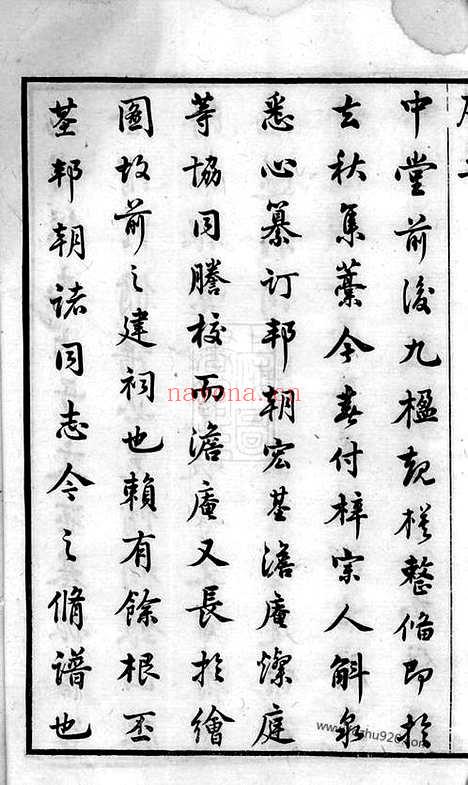 中堂前後九楹規模整備即於
去秋集稾今春付梓宗人斛泉
悉心纂訂邦朝宏基澹庵燦庭
等協同謄校而澹庵又長於繪
圖故前之建祠也賴有餘根丕
基邦朝諸同志今之脩譜也
nayona.cn
shu926.com